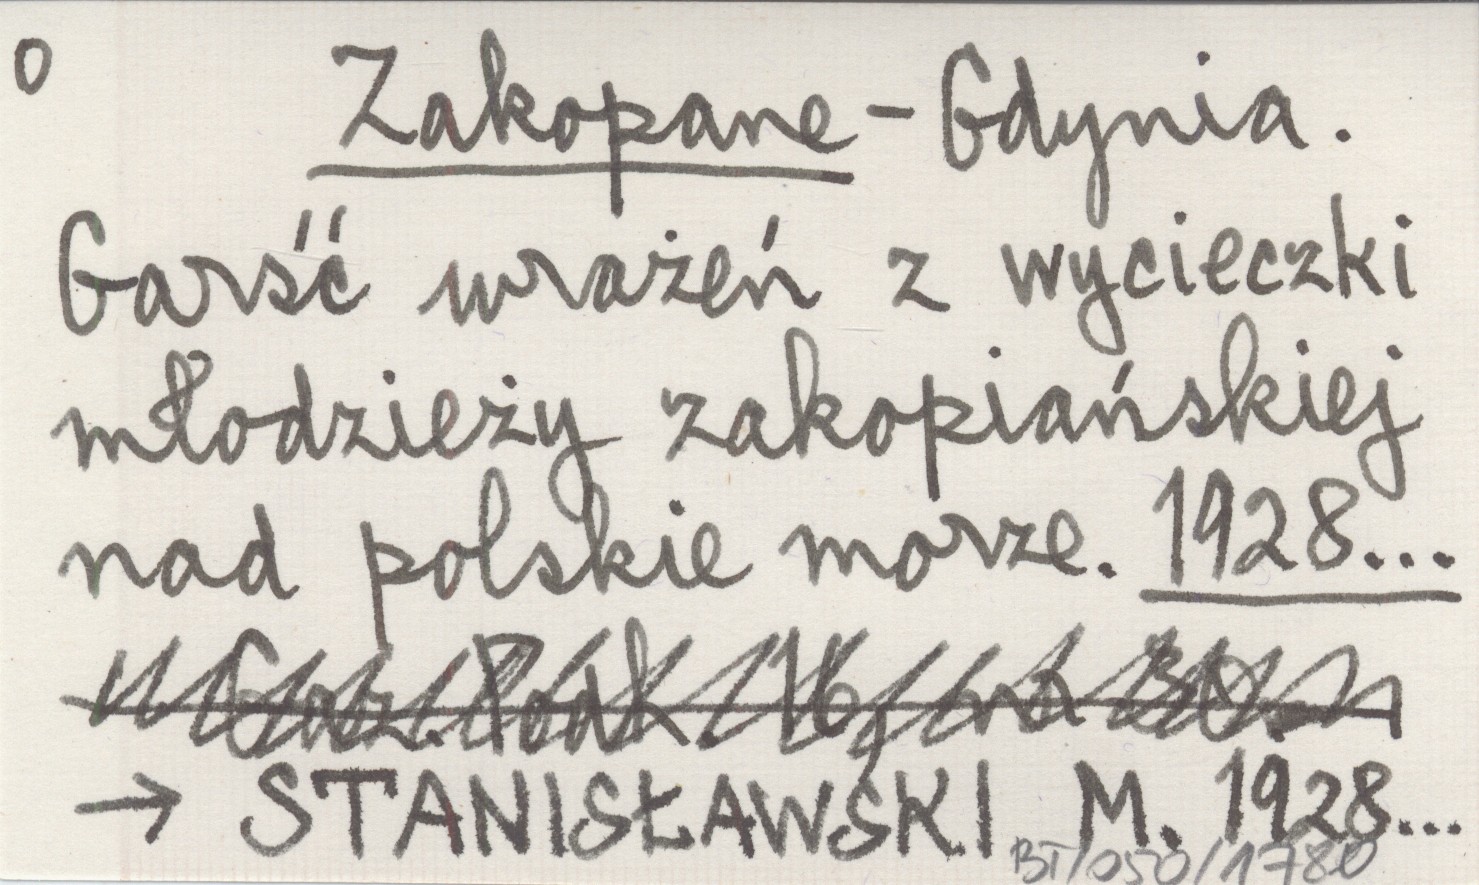 0 Zakopane - Gdynia.
Garść wrażeń z wycieczki
młodzieży zakopiańskiej
nad polskie morze. 1928...
Gaz. Podh. 16, nr 30.
→ STANISŁAWSKI M. 1928...
BT/050/1780